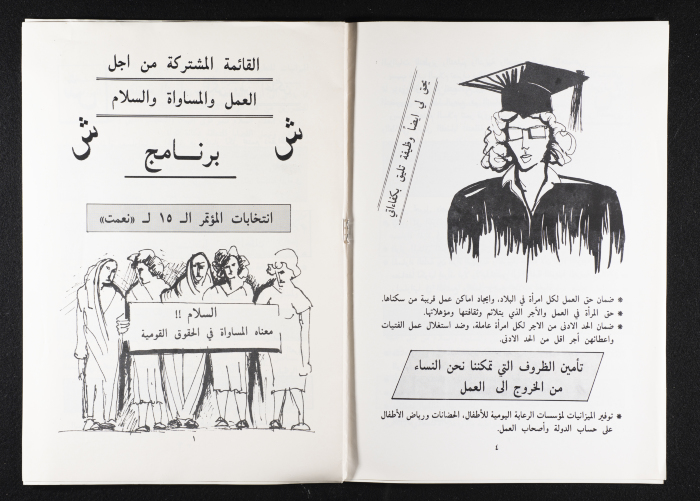 القائمة المشتركة من اجل
العمل والمساواة والسلام
ش
ش
برنـامج
انتخابات المؤتمر الـ ١٥ لـ «نعمت»
السلام !!
معناه المساواة في الحقوق القومية
١
يحق لي ايضاً وظيفة تليق بكفاءاتي
* ضمان حق العمل لكل امرأة في البلاد، وايجاد اماكن عمل قريبة من سكناها.
* حق المرأة في العمل والأجر الذي يتلائم وثقافتها ومؤهلاتها.
* ضمان الحد الادنى من الاجر لكل امرأة عاملة، وضد استغلال عمل الفتيات
واعطائهن أجر اقل من الحد الادنى.
تأمين الظروف التي تمكننا نحن النساء
من الخروج الى العمل
* توفير الميزانيات لمؤسسات الرعاية اليومية للأطفال، الحضانات ورياض الأطفال
على حساب الدولة وأصحاب العمل.
٤